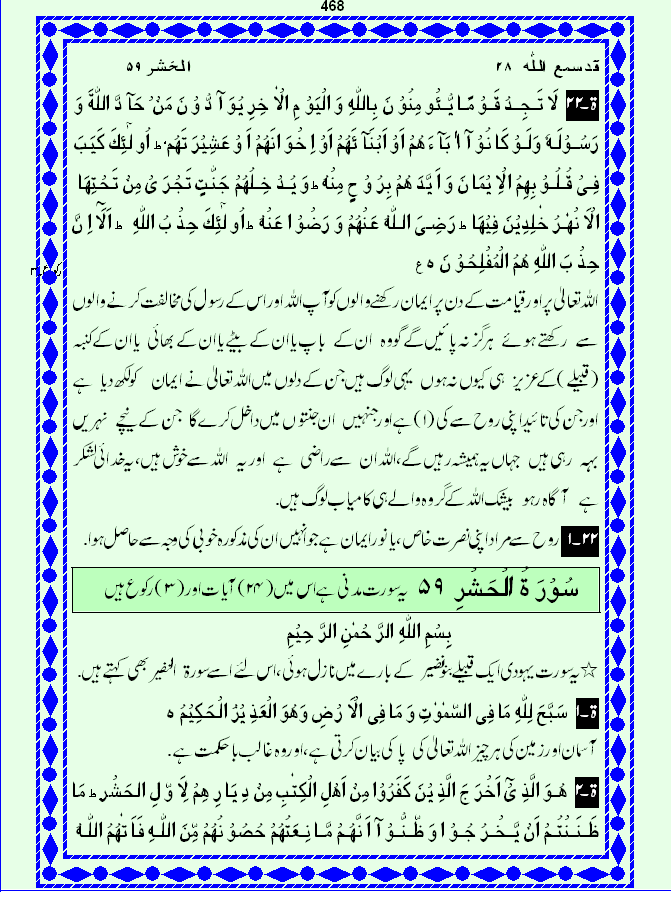 468
قد سمع اللہ ۲۸ الحشر ۵۹
ۃ۔۲۲ لَا تَجِدُ قَوْمًا یُّئْومِنُوْنَ بِاللّٰہِ وَالْیَوْمِ الْاٰخِرِ یُوَآدُّوْنَ مَنْ حَآدَّ اللّٰہَ وَ
رَسُوْلَہٗ وَلَوْ کَانُوْآ اٰبَآءَھُمْ اَوْ اَبْنَآئَھُمْ اَوْ اِخْوَانَھُمْ اَوْ عَشِیْرَتَھُمْ ؕ اُولٰٓئِکَ کَتَبَ
فِیْ قُلُوْبِھِمُ الْاِیْمَانَ وَاَیَّدَھُمْ بِرُوْحٍ مِنْہُ ؕ وَیُدْخِلُھُمْ جَنّٰتٍ تَجْرَیْ مِنْ تَحْتِھَا
الْاَنْھٰرُ خٰلِدِیْنَ فِیْھَا ؕ رَضِیَ اللّٰہُ عَنْھُمْ وَرَضُوْا عَنْہُ ؕ اُولٰٓئِکَ حِذْبُ اللّٰہِ ؕ اَلَآ اِنَّ
حِذْبَ اللّٰہِ ھُمُ الْمُفْلِحُوْنَ ہ ع
اللہ تعالیٰ پر اور قیامت کے دن پر ایمان رکھنے والوں کو آپ اللہ اور اس کے رسول کی مخالفت کرنے والوں
سے رکھتے ہوئے ہرگز نہ پائیں گے گو وہ ان کے باپ یا ان کے بیٹے یا ان کے بھائی یا ان کے کنبہ
(قبیلے) کے عزیز ہی کیوں نہ ہوں یہی لوگ ہیں جن کے دلوں میں اللہ تعالیٰ نے ایمان کو لکھ دیا ہے
اور جن کی تائید اپنی روح سے کی (۱) ہے اور جنہیں ان جنتوں میں داخل کرے گا جن کے نیچے نہریں
بہہ رہی ہیں جہاں یہ ہمیشہ رہیں گے، اللہ ان سے راضی ہے اور یہ اللہ سے خوش ہیں، یہ خدائی لشکر
ہے آگاہ رہو بیشک اللہ کے گروہ والے ہی کامیاب لوگ ہیں.
۲۲۔۱ روح سے مراد اپنی نصرت خاص، یا نور ایمان ہے جو انہیں ان کی مذکورہ خوبی کی وجہ سے حاصل ہوا.
سُوْرَۃُ الْحَشْرِ ۵۹ یہ سورت مدنی ہے اس میں (۲۴) آیات اور (۳) رکوع ہیں
بِسْمِ اللّٰہِ الرَّحْمٰنِ الرَّحِیْمِ
☆ یہ سورت یہودی ایک قبیلے بنو نضیر کے بارے میں نازل ہوئی، اس لئے اسے سورۃ النضیر بھی کہتے ہیں.
ۃ۔۱ سَبَّحَ لِلّٰہِ مَا فِی السَّمٰوٰتِ وَمَا فِی الْاَرْضِ وَھُوَ الْعَذِیْزُ الْحَکِیْمُ ہ
آسمان اور زمین کی ہر چیز اللہ تعالیٰ کی پاکی بیان کرتی ہے، اور وہ غالب با حکمت ہے.
ۃ۔۲ ھُوَ الَّذِیْٓ اَخْرَجَ الَّذِیْنَ کَفَرُوْا مِنْ اَھْلِ الْکِتٰبِ مِنْ دِیَارِھِمْ لِاَوَّلِ الْحَشْرِ ؕ مَا
ظَنَنْتُمْ اَنْ یَّخْرُجُوْا وَظَنُّوْآ اَنَّھُمْ مَّانِعَتُھُمْ حُصُوْنُھُمْ مِّنَ اللّٰہِ فَاَتٰھُمُ اللّٰہُ